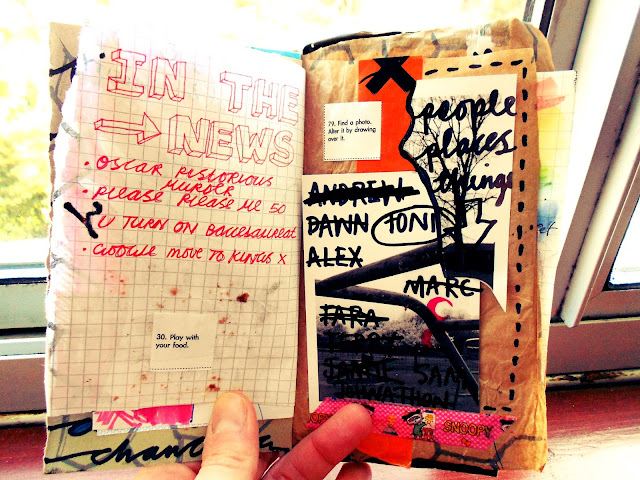 IN THE
NEWS
• OSCAR PISTORIOUS
MURDER
• PLEASE PLEASE ME 50
U TURN ON BACCELAUREAT
• GOOGLE MOVE TO KINGS X
30. Play with
your food.
79. Find a photo.
Alter it by drawing
over it.
people
places
things
ANDREW
DAWN TONI
ALEX
MARC
FARA
SAM
JONATHON
SNOOPY